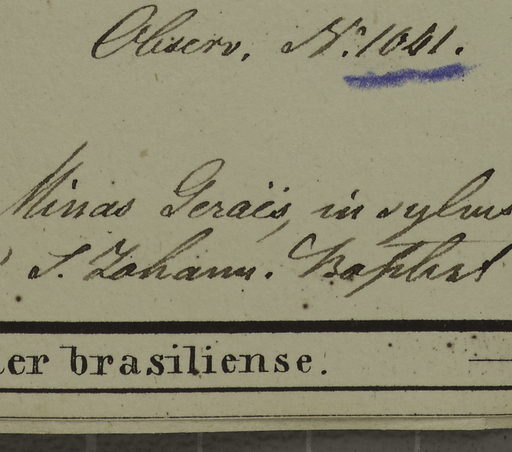 Observ. N.º 1041.
Minas Geraës, in sylvis
S. Johann. Baptist
ter brasiliense.